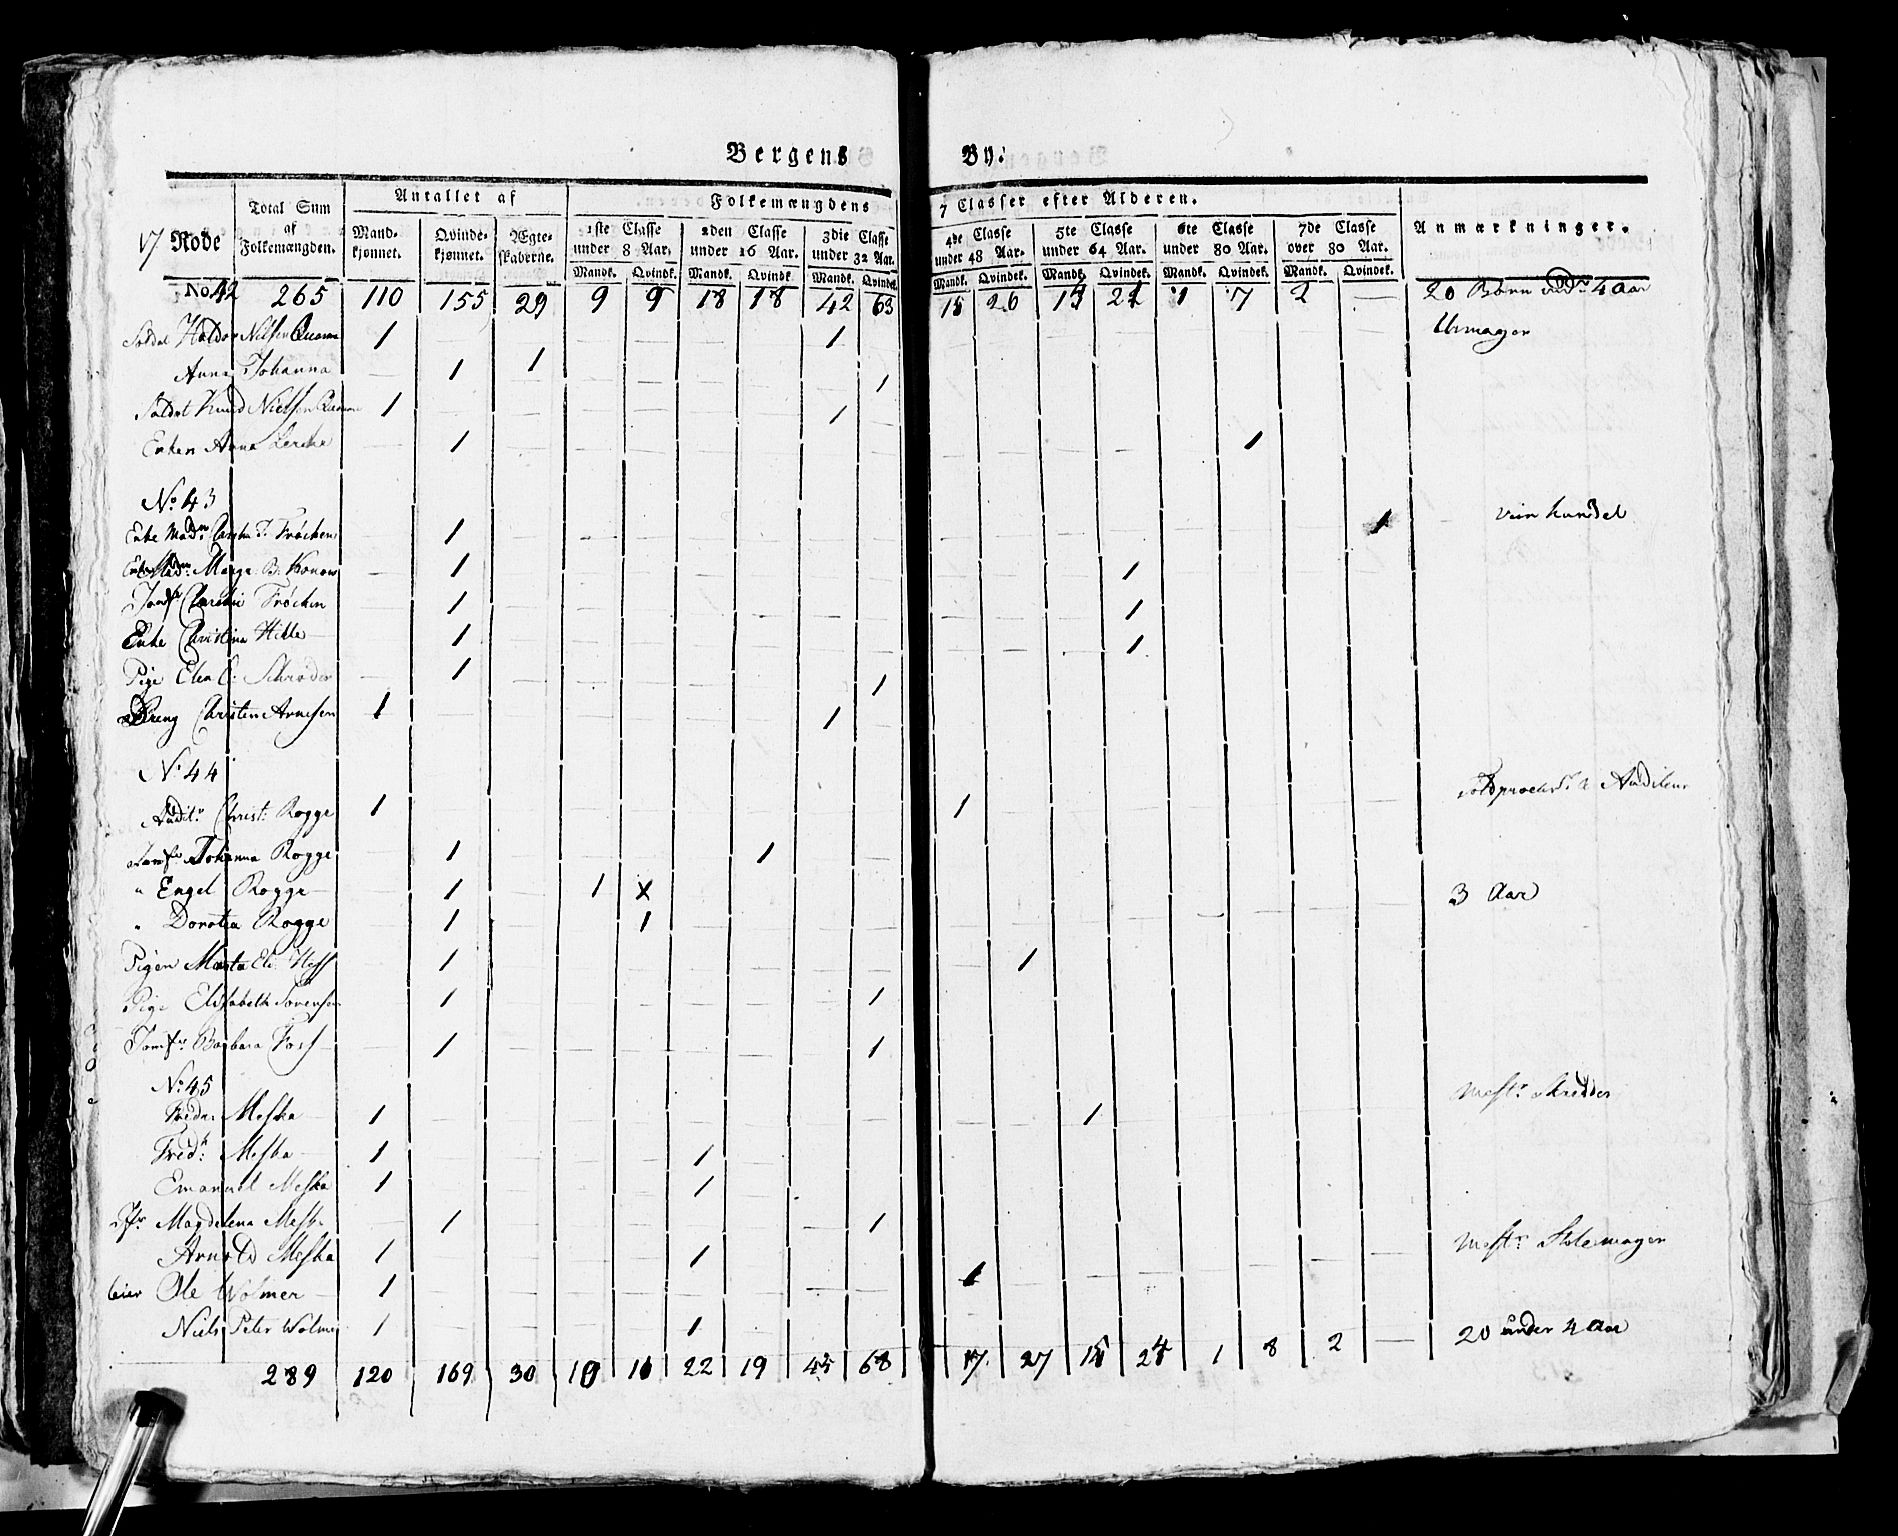 Bergens By.
17 Rode
Total Sum af Folkemængden.
Antallet af
Mandkjønnet. Qvindekjønnet. Ægteskaberne.
Folkemængdens 7 Classer efter Alderen.
1ste Classe under 8 Aar. 2den Classe under 16 Aar. 3die Classe under 32 Aar. 4de Classe under 48 Aar. 5te Classe under 64 Aar. 6te Classe under 80 Aar. 7de Classe over 80 Aar.
Anmærkninger.
Mandk. Qvindk. Mandk. Qvindk. Mandk. Qvindek. Mandk. Qvindek. Mandk. Qvindek. Mandk. Qvindek. Mandk. Qvindek.
No 42 265 110 155 29 9 9 18 18 42 63 26 1 7 2 — 20 Børn 4 Aar
Soldat Haldor Nilsen 1 1 Urmager
Anna Johanna 1 1 1
Soldat Knud Nielsen 1 1
Enken Anna Lerche 1 1
No 43
Enke Mad: Trøchen 1 1 vin handel
Marga: B: Konow 1 1
Jomf: Trøchen 1 1
Enke Christina Hille 1 1
Pige Elen C: Schrøder 1 1
Dreng Christen Arnesen 1 1
No 44
Audit: Christ: Rogge 1 1 Auditeur
Jomfr Johanna Rogge 1 1
" Engel Rogge 1 1 x 3 Aar
" Dorotea Rogge 1 1
Pigen Marta El: Hess 1 1
Pige Elisabeth Sørensen 1 1
Jomfr: Barbara Foss 1 1
No 45
Meska 1 1 Mestr: skredder
Fredk: Meska 1 1
Emanuel Meska 1 1
Jfr Magdelena Meska 1 1
Arnold Meska 1 1 Mestr: Stolemager
leier Ole Wolmer 1 1
Niels Peter Wolmer 1 1 20 under 4 Aar
289 120 169 30 10 22 19 45 68 17 27 1 8 2 —